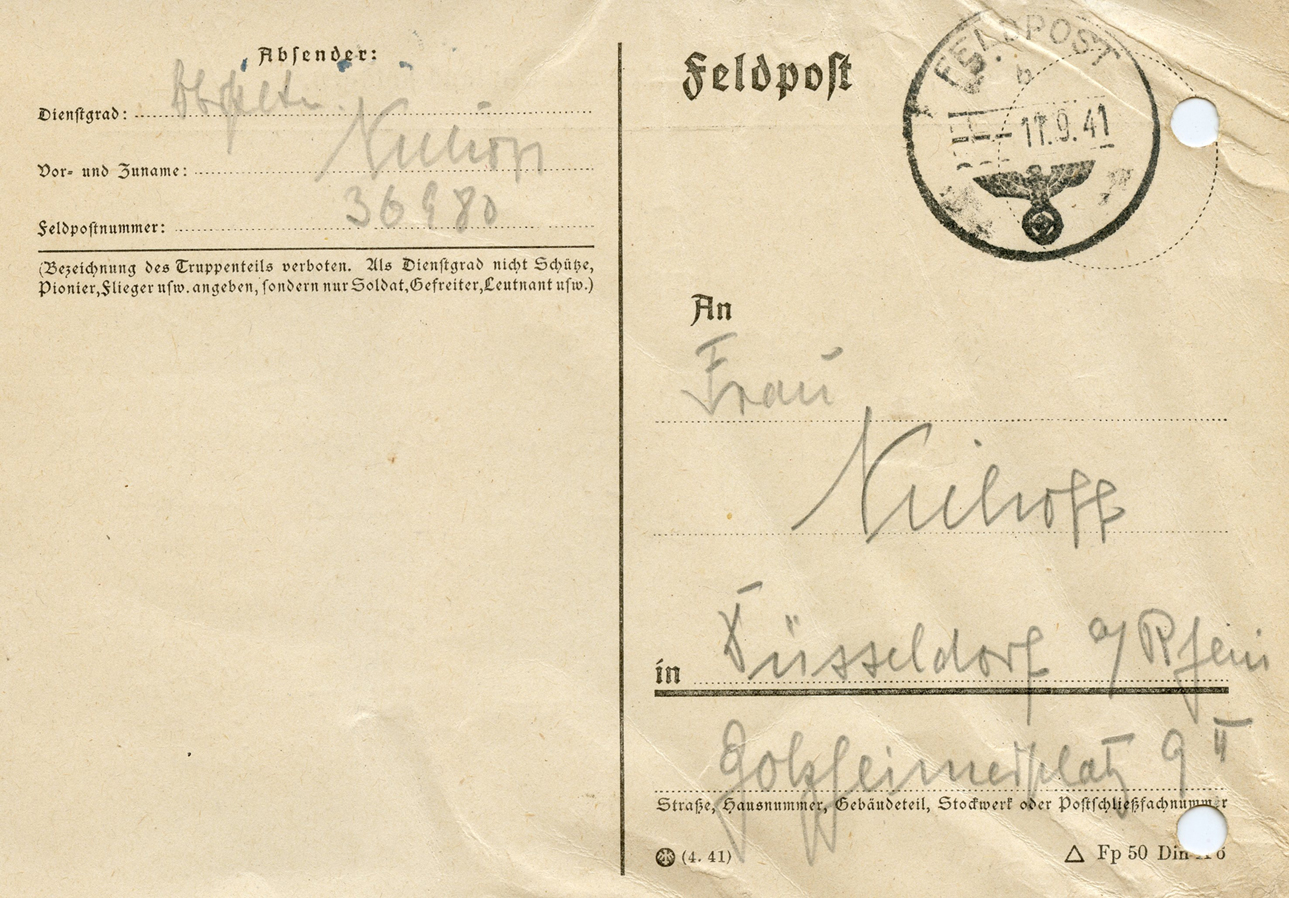 Absender:
Dienstgrad:
Vor- und Zuname: Niehoff
Feldpostnummer: 36980
(Bezeichnung des Truppenteils verboten. Als Dienstgrad nicht Schütze,
Pionier, Flieger usw. angeben, sondern nur Soldat, Gefreiter, Leutnant usw.)
Feldpost
FELDPOST
b
11.9.41
An
Frau
Niehoff
in Düsseldorf a/Rhein
Golzheimerplatz 9 II
Straße, Hausnummer, Gebäudeteil, Stockwerk oder Postschließfachnummer
(4. 41)
Fp 50 Din A 6